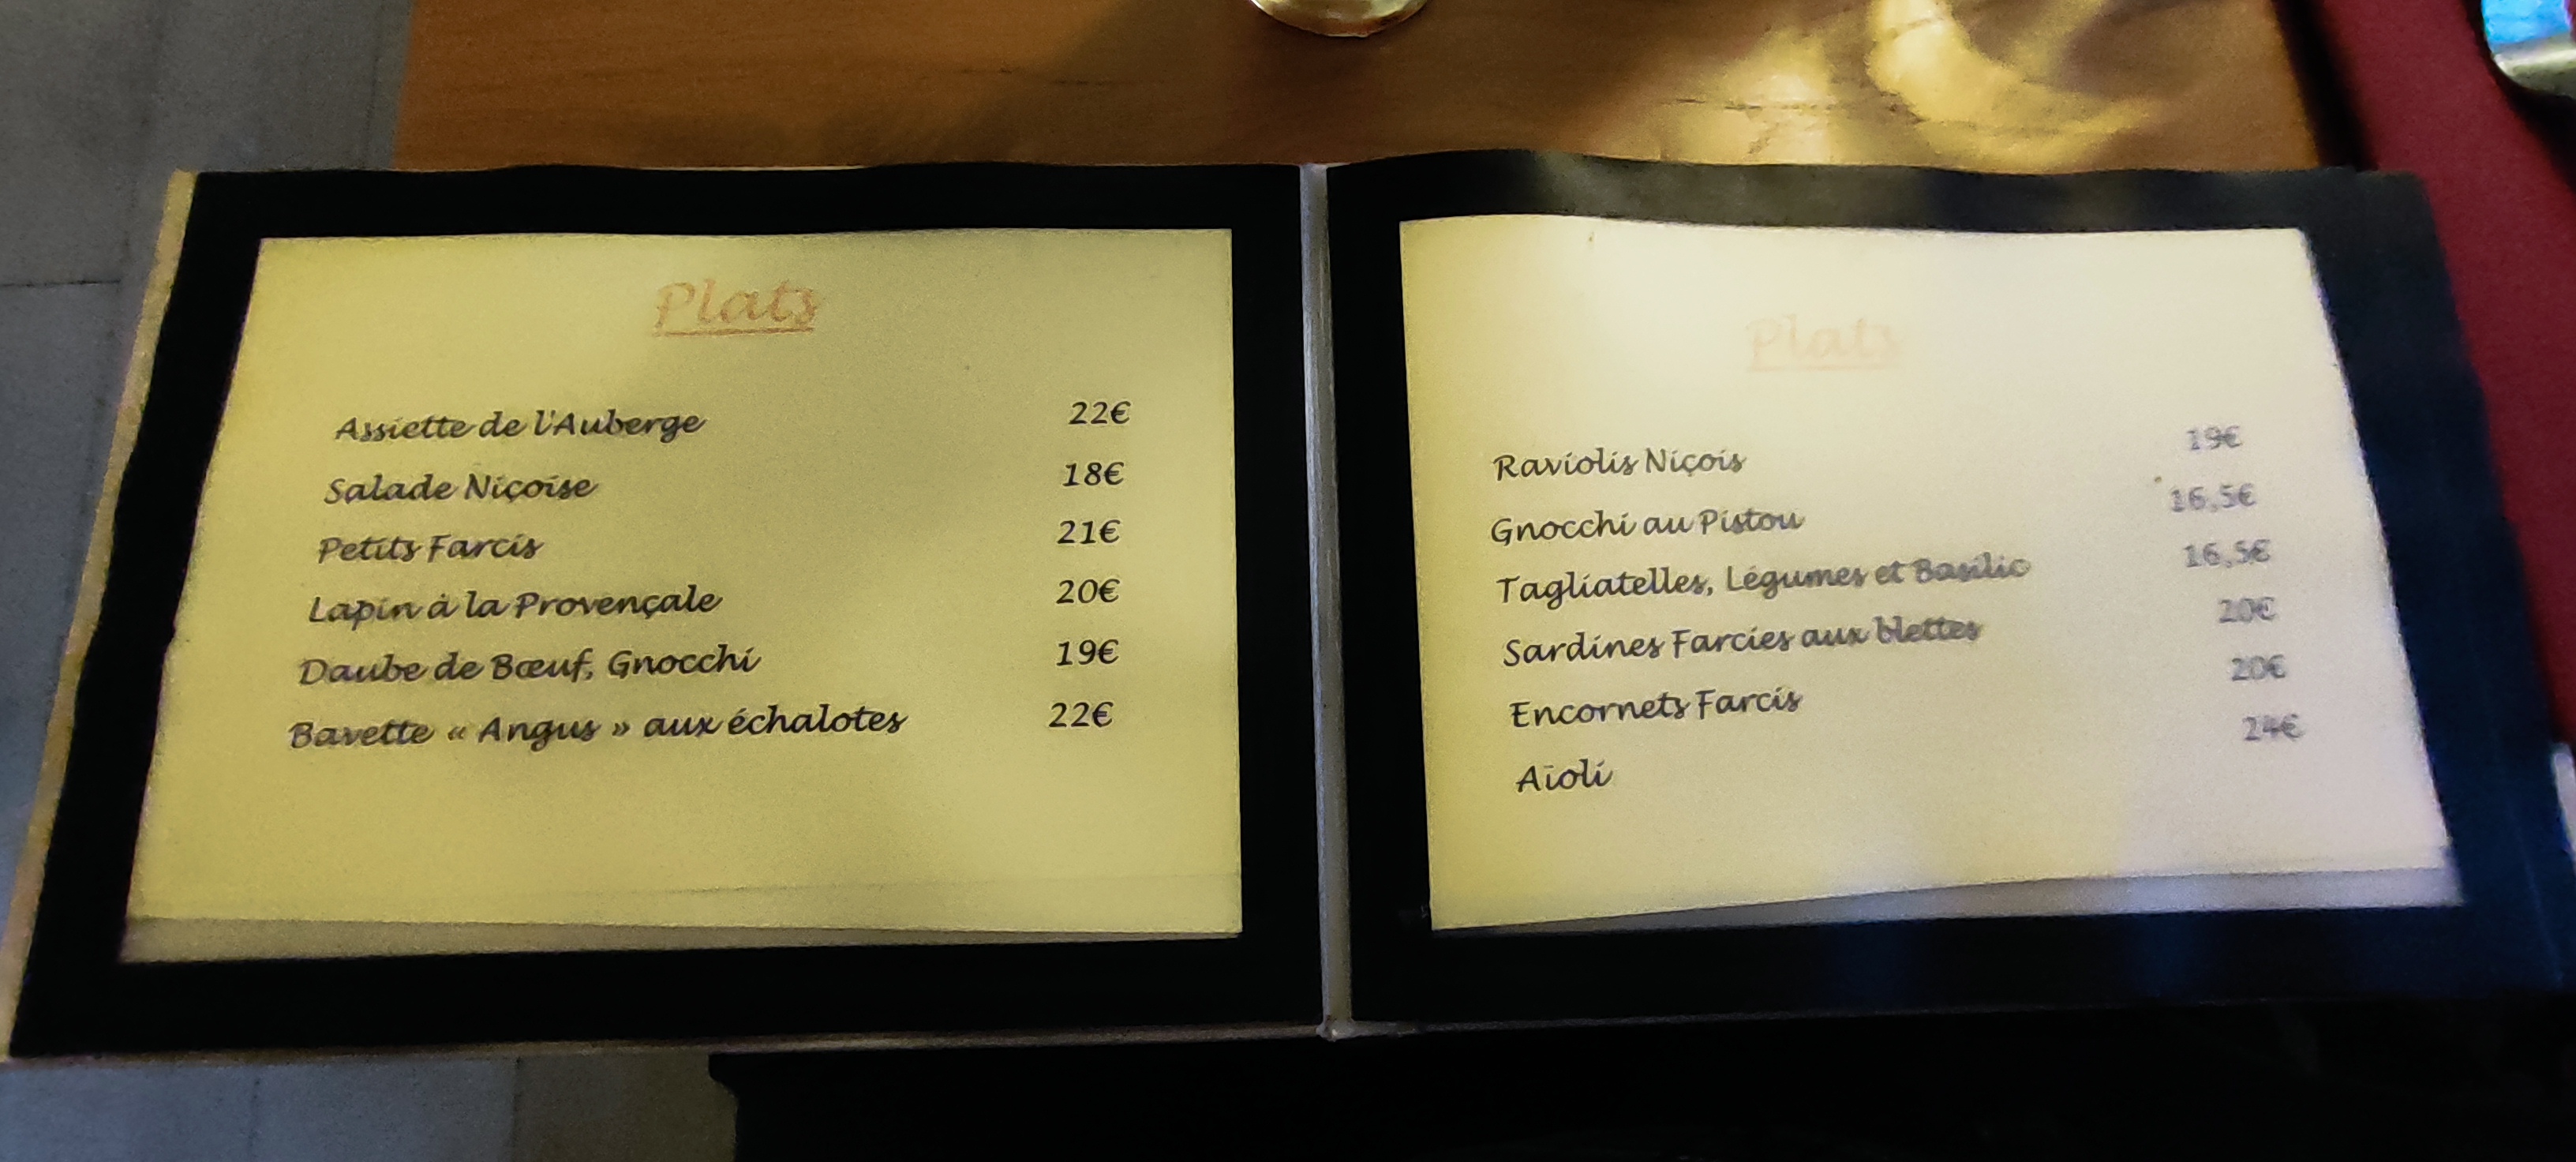 Plats
Assiette de l'Auberge 22€
Salade Niçoise 18€
Petits Farcis 21€
Lapin à la Provençale 20€
Daube de Bœuf, Gnocchi 19€
Bavette « Angus » aux échalotes 22€
Plats
Raviolis Niçois 19€
Gnocchi au Pistou 16,5€
Tagliatelles, Légumes et Basilic 16,5€
Sardines Farcies aux blettes 20€
Encornets Farcis 20€
Aïoli 24€